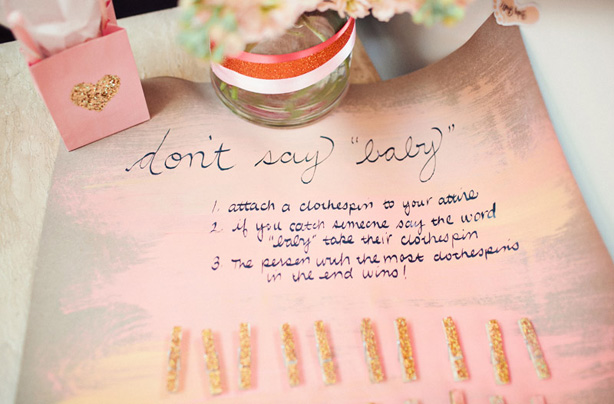 don't say "baby"
1. attach a clothespin to your attire
2. if you catch someone say the word
"baby" take their clothespin
3 The person with the most clothespins
in the end wins!